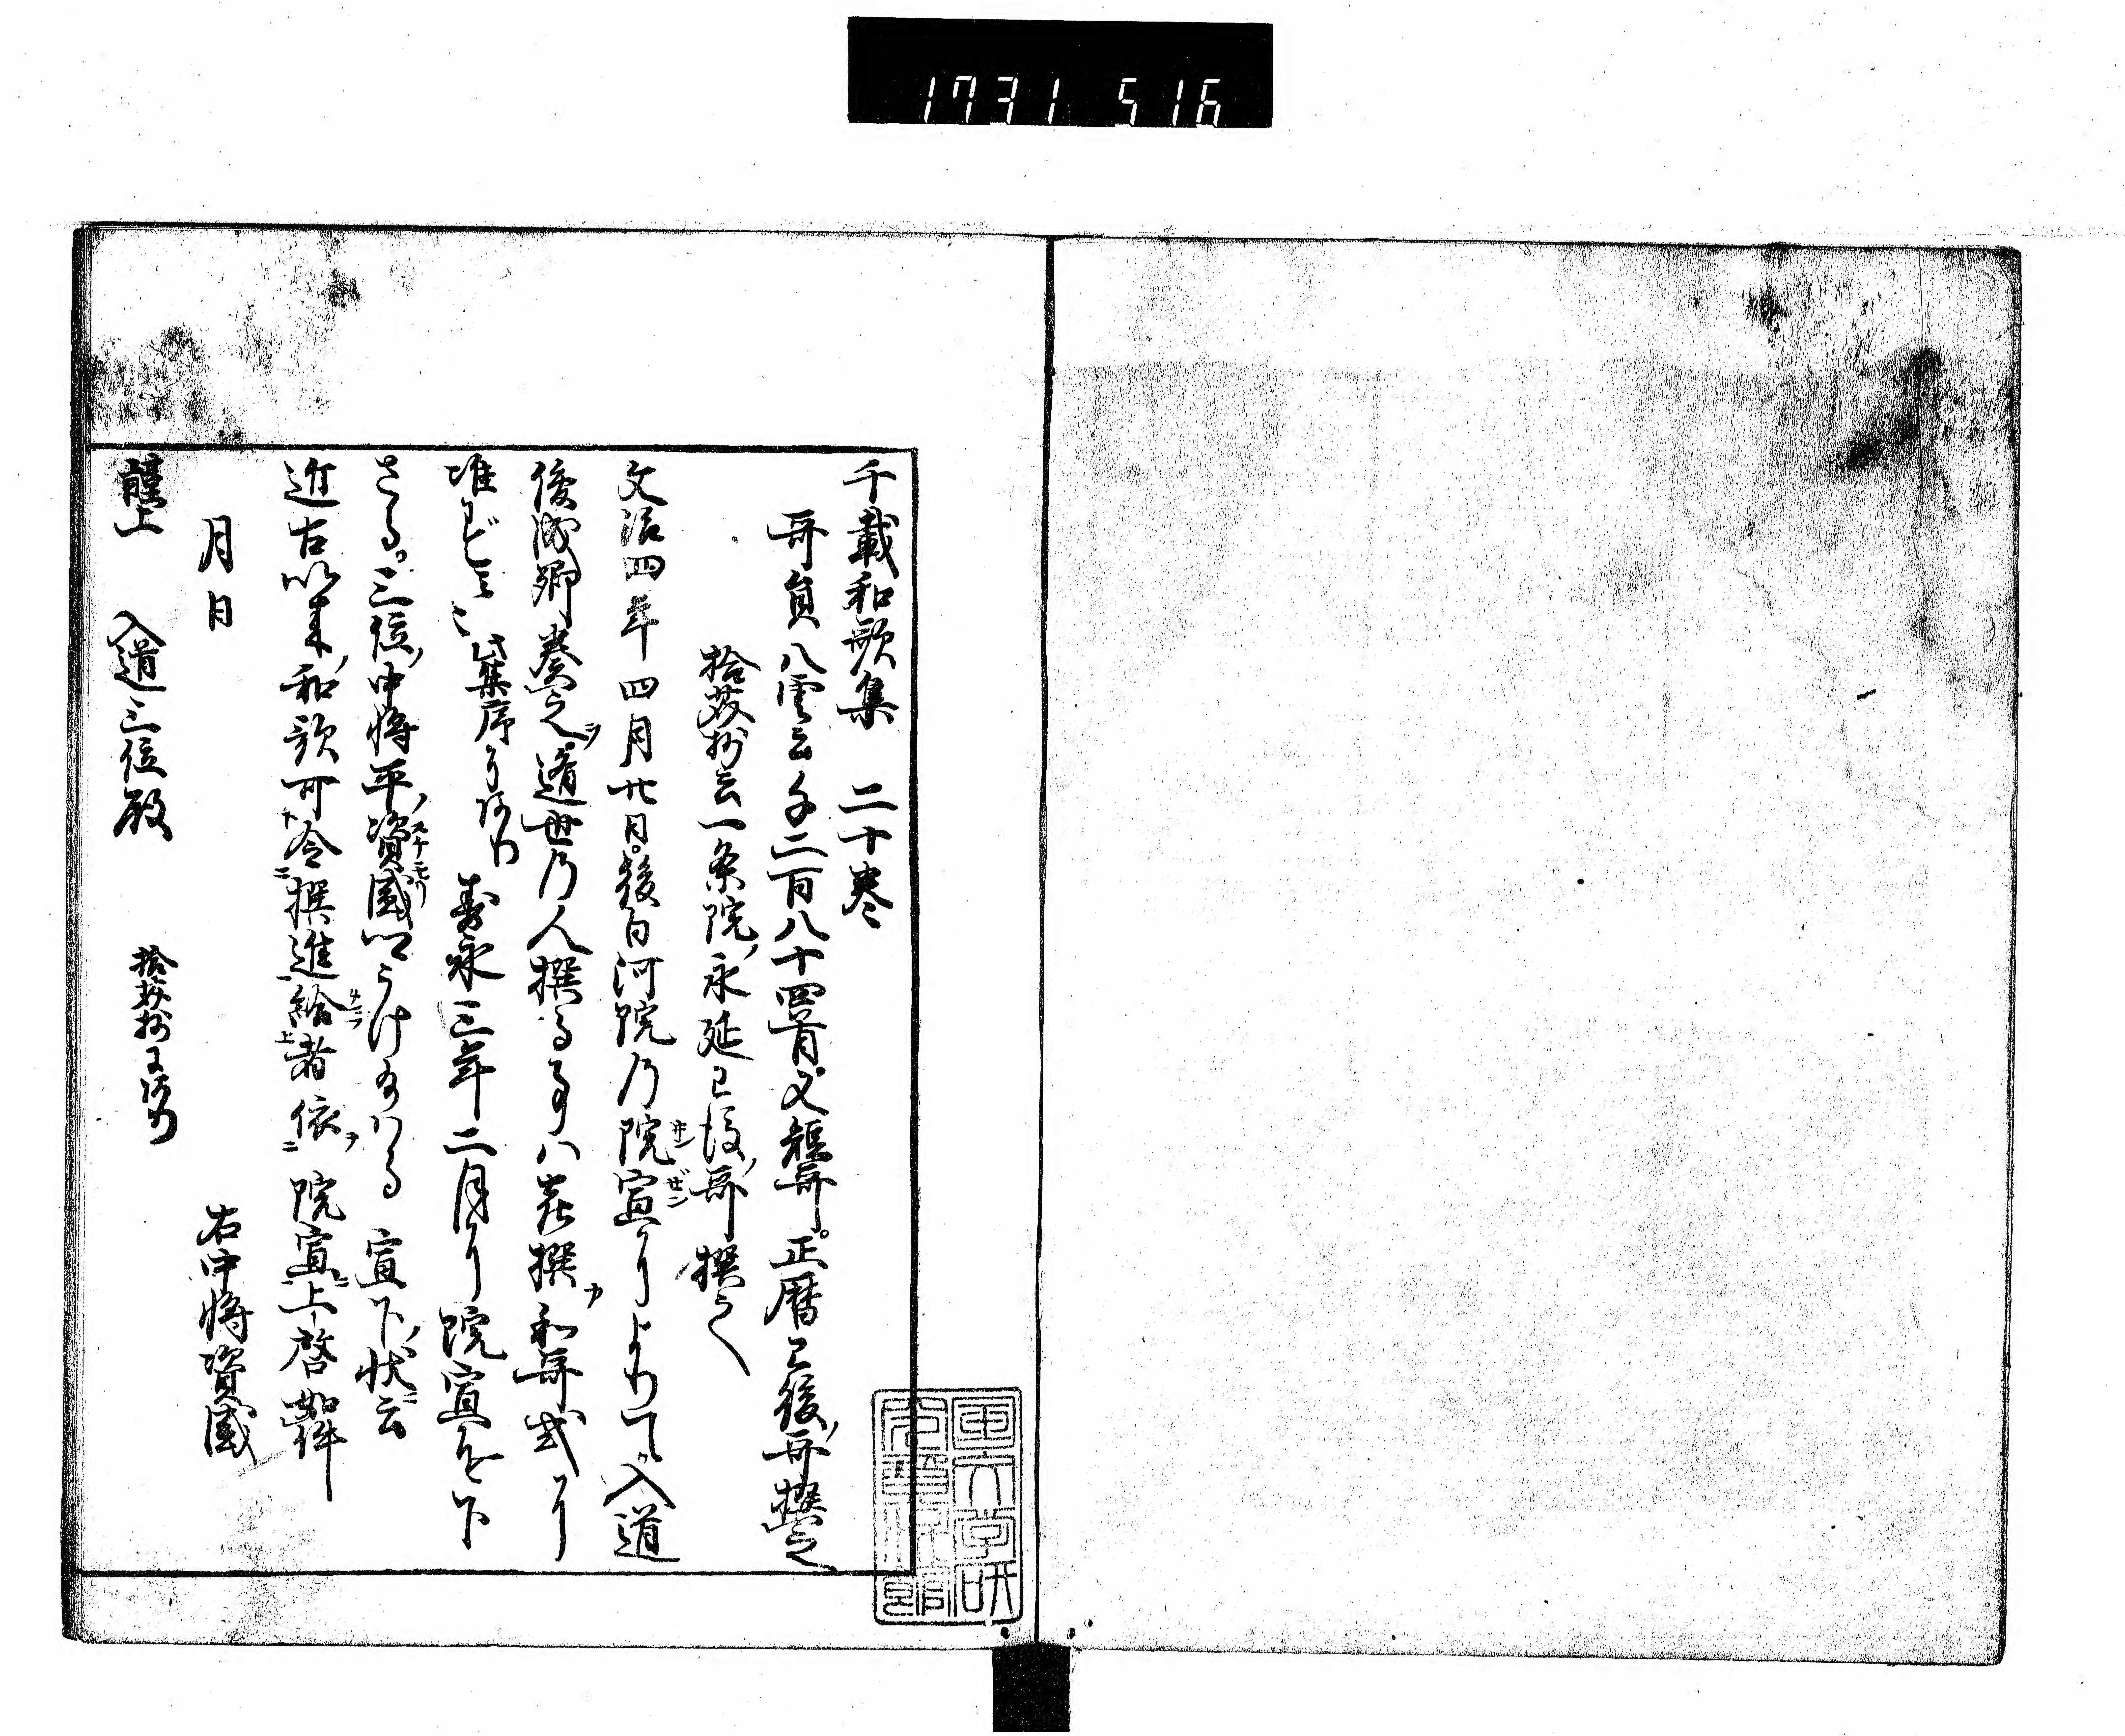 1731 516
千載和歌集　二十巻
哥員八雲云千二百八十四首又短哥。正暦已後ノ哥撰之
拾芥抄云一条院ノ永延已後ノ哥撰之
文治四年四月廿日。後白河院乃院宣によりて。入道
俊成卿奏之。遁世乃人撰る事ハ喜撰カ和哥式に
准ずと云々此集序にあり　寿永三年二月に院宣を下
さる。三位ノ中将平ノ資盛うけ給ハる　宣下ノ状云
近古以来ノ和歌可令撰進給者依　院宣上啓如件
月日　右中将資盛
謹上　入道三位殿　拾芥抄に有